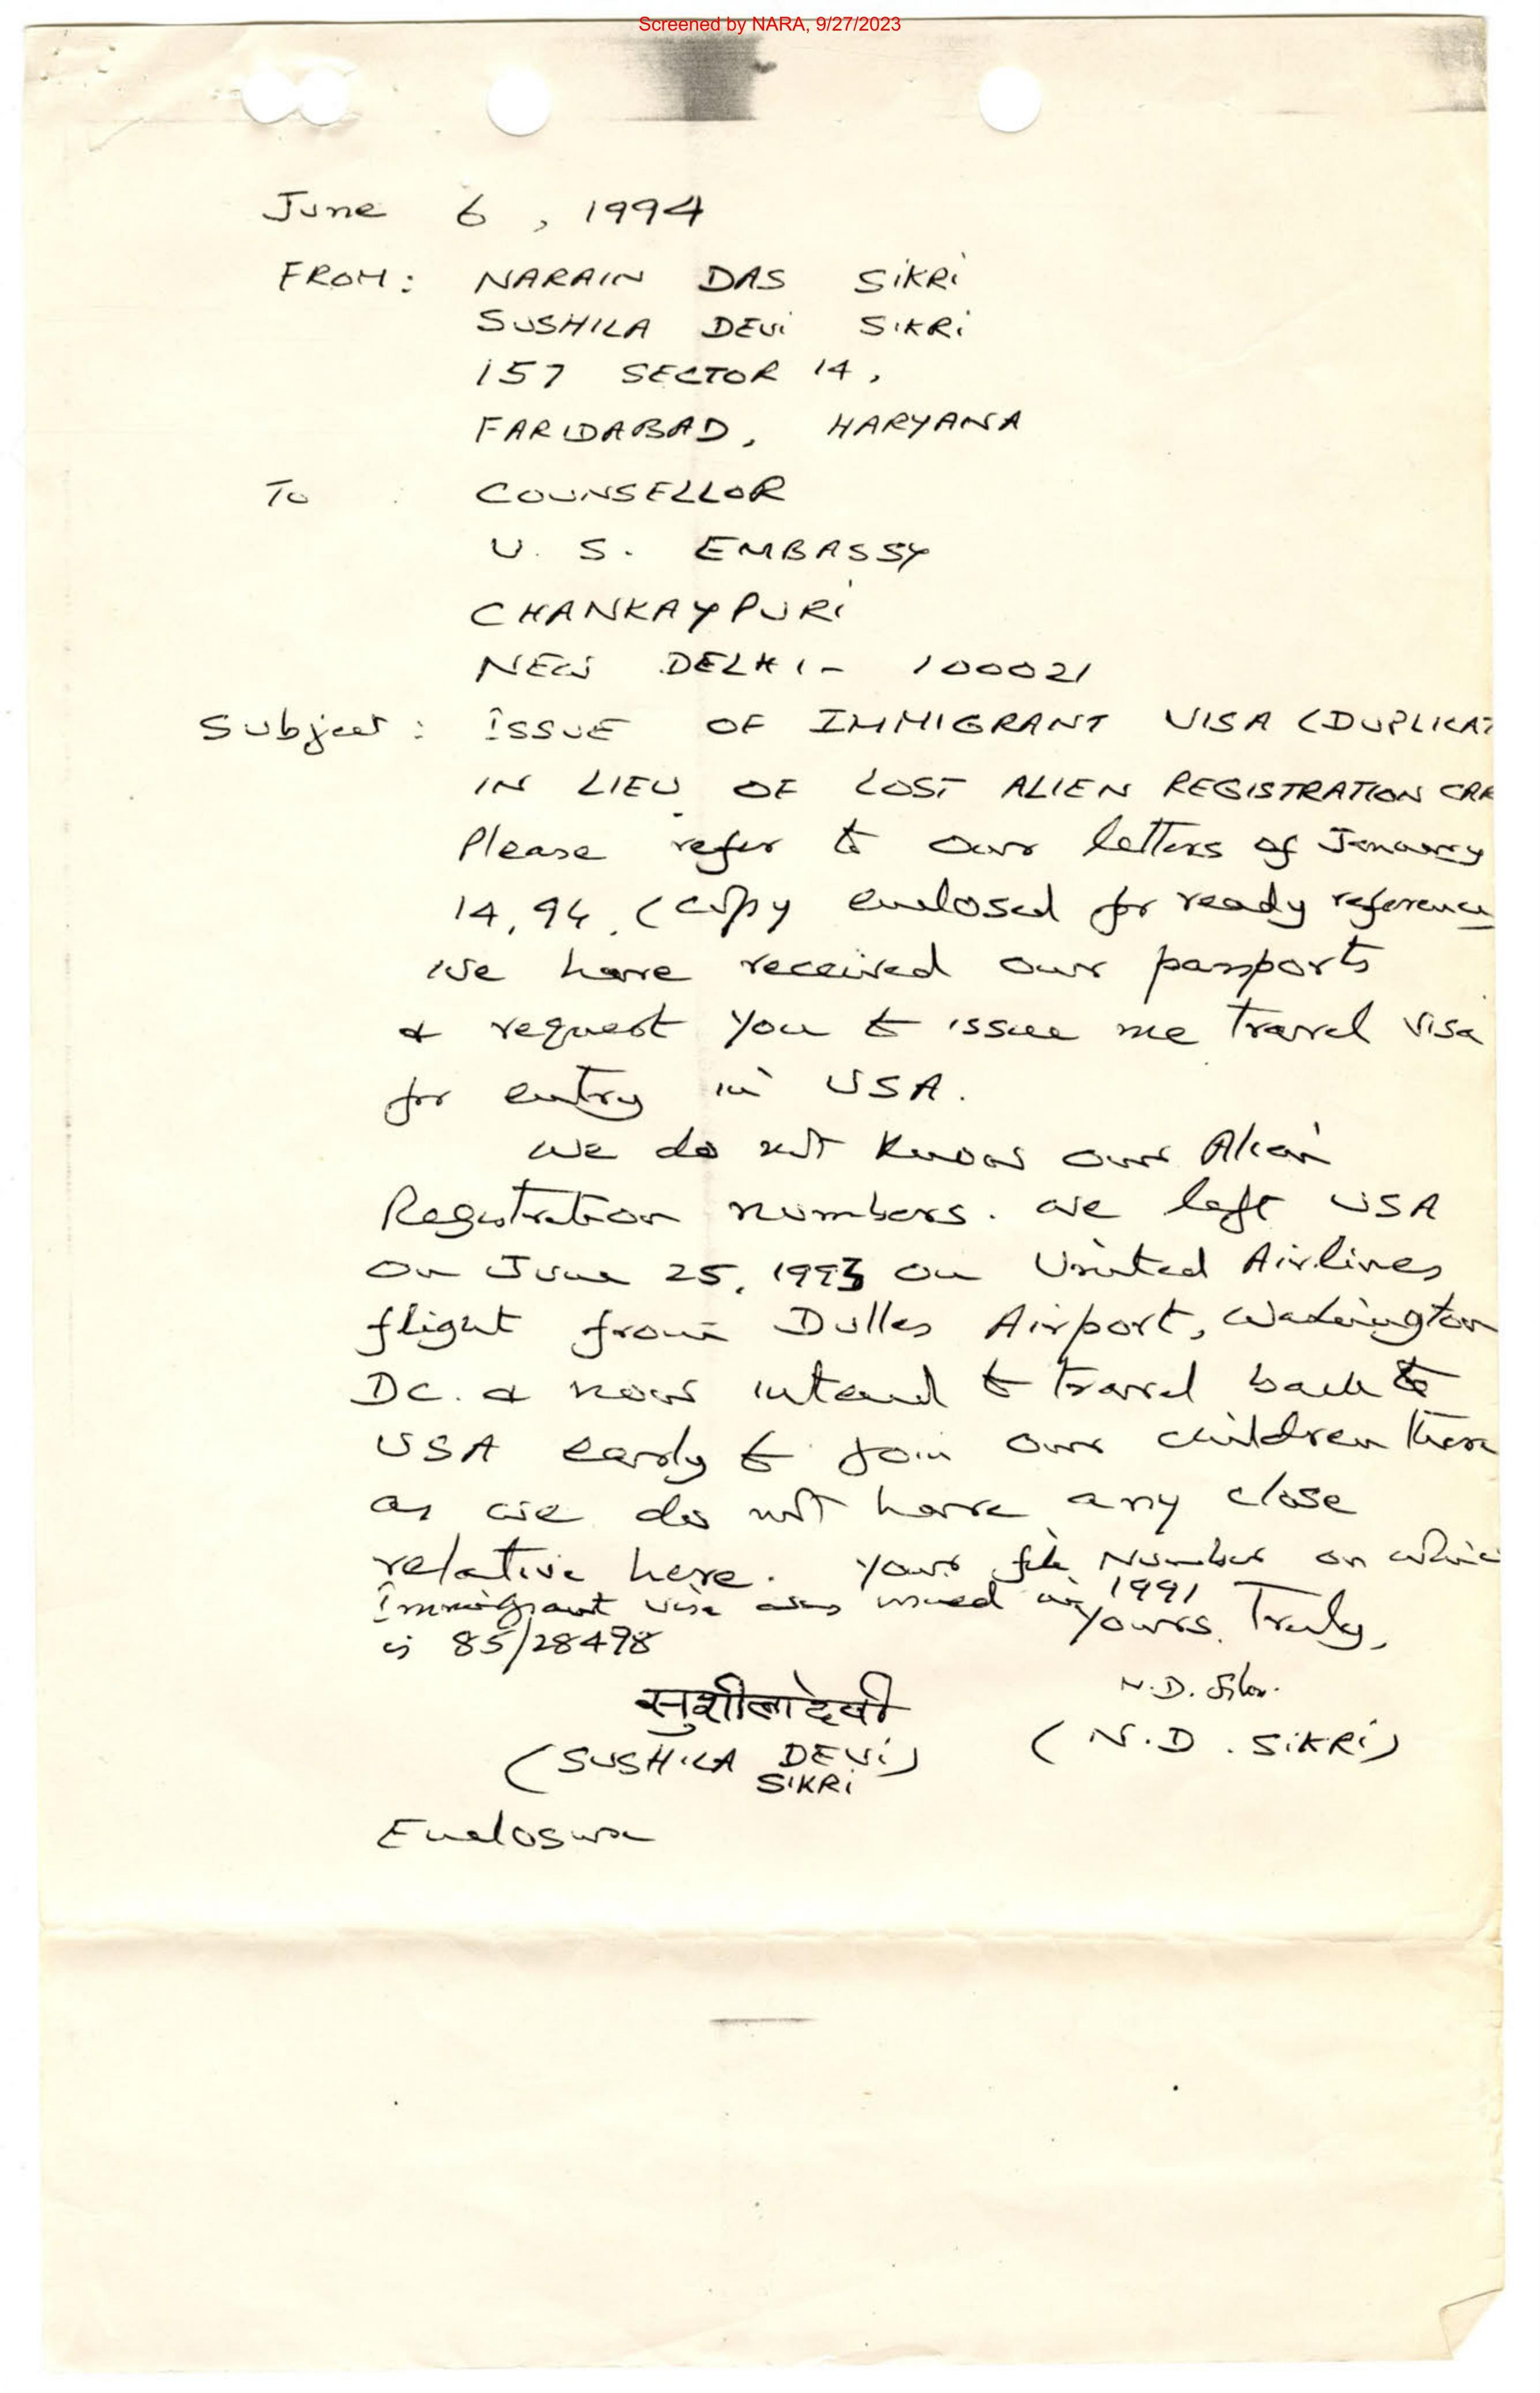 Screened by NARA, 9/27/2023
June 6, 1994
FROM: NARAIN DAS SIKRI
SUSHILA DEVI SIKRI
157 SECTOR 14,
FARIDABAD, HARYANA
To : COUNSELLOR
U. S. EMBASSY
CHANKAYPURI
NEW DELHI - 100021
Subject: ISSUE OF IMMIGRANT VISA (DUPLICAT
IN LIEU OF LOST ALIEN REGISTRATION CAR
Please refer to our letters of January
14, 94. (copy enclosed for ready reference
we have received our passports
& request you to issue me travel visa
for entry in USA.
we do not know our Alien
Registration numbers. we left USA
on June 25, 1993 on United Airlines
flight from Dulles Airport, Washington
DC. & now intend to travel back to
USA early to join our children there
as we do not have any close
relative here. your file Number on which
Immigrant visa was issued in 1991
is 85/28498
yours Truly,
सुशीला देवी
N.D. Sikri
(SUSHILA DEVI) (N.D. SIKRI)
SIKRI
Enclosure